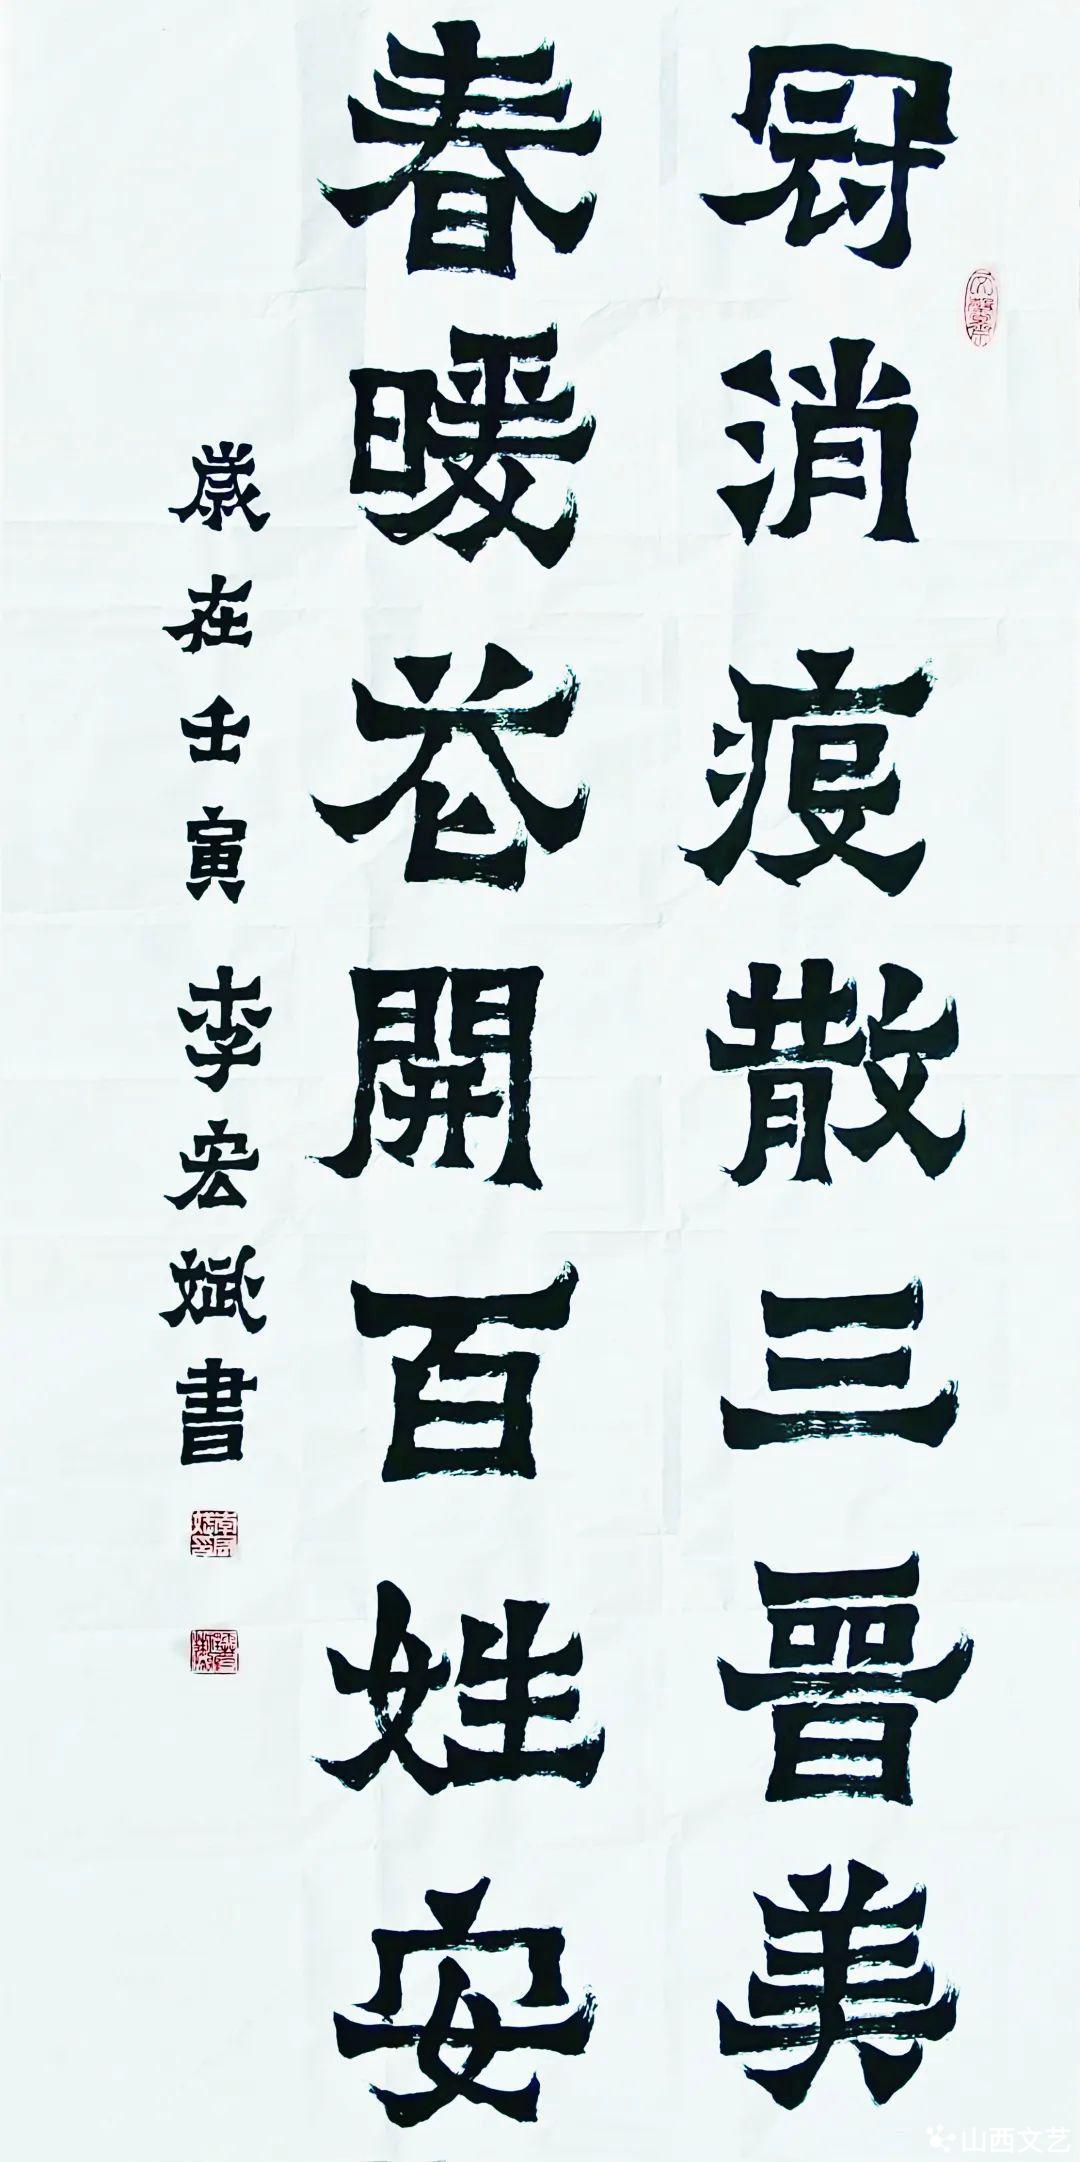 冠消疫散三晉美
春暖花開百姓安
歲在壬寅李宏斌書
山西文艺